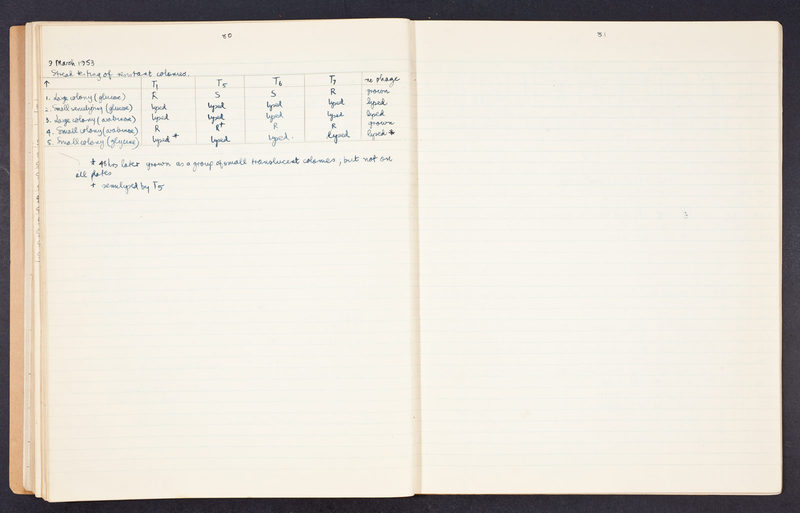 80
9 March 1953
Streak testing of resistant colonies.
↑ T1 T5 T6 T7 no phage
1. Large colony (glucose) R S S R grown
2. Small (glucose) lysed lysed lysed lysed lysed
3. Large colony (arabinose) lysed lysed lysed lysed lysed
4. Small colony (arabinose) R R+ R R grown
5. Small colony (glycine) lysed * lysed lysed. lysed lysed *
* 48 hrs later grown as a group of small translucent colonies, but not on
all plates
+ semilysed by T5
81